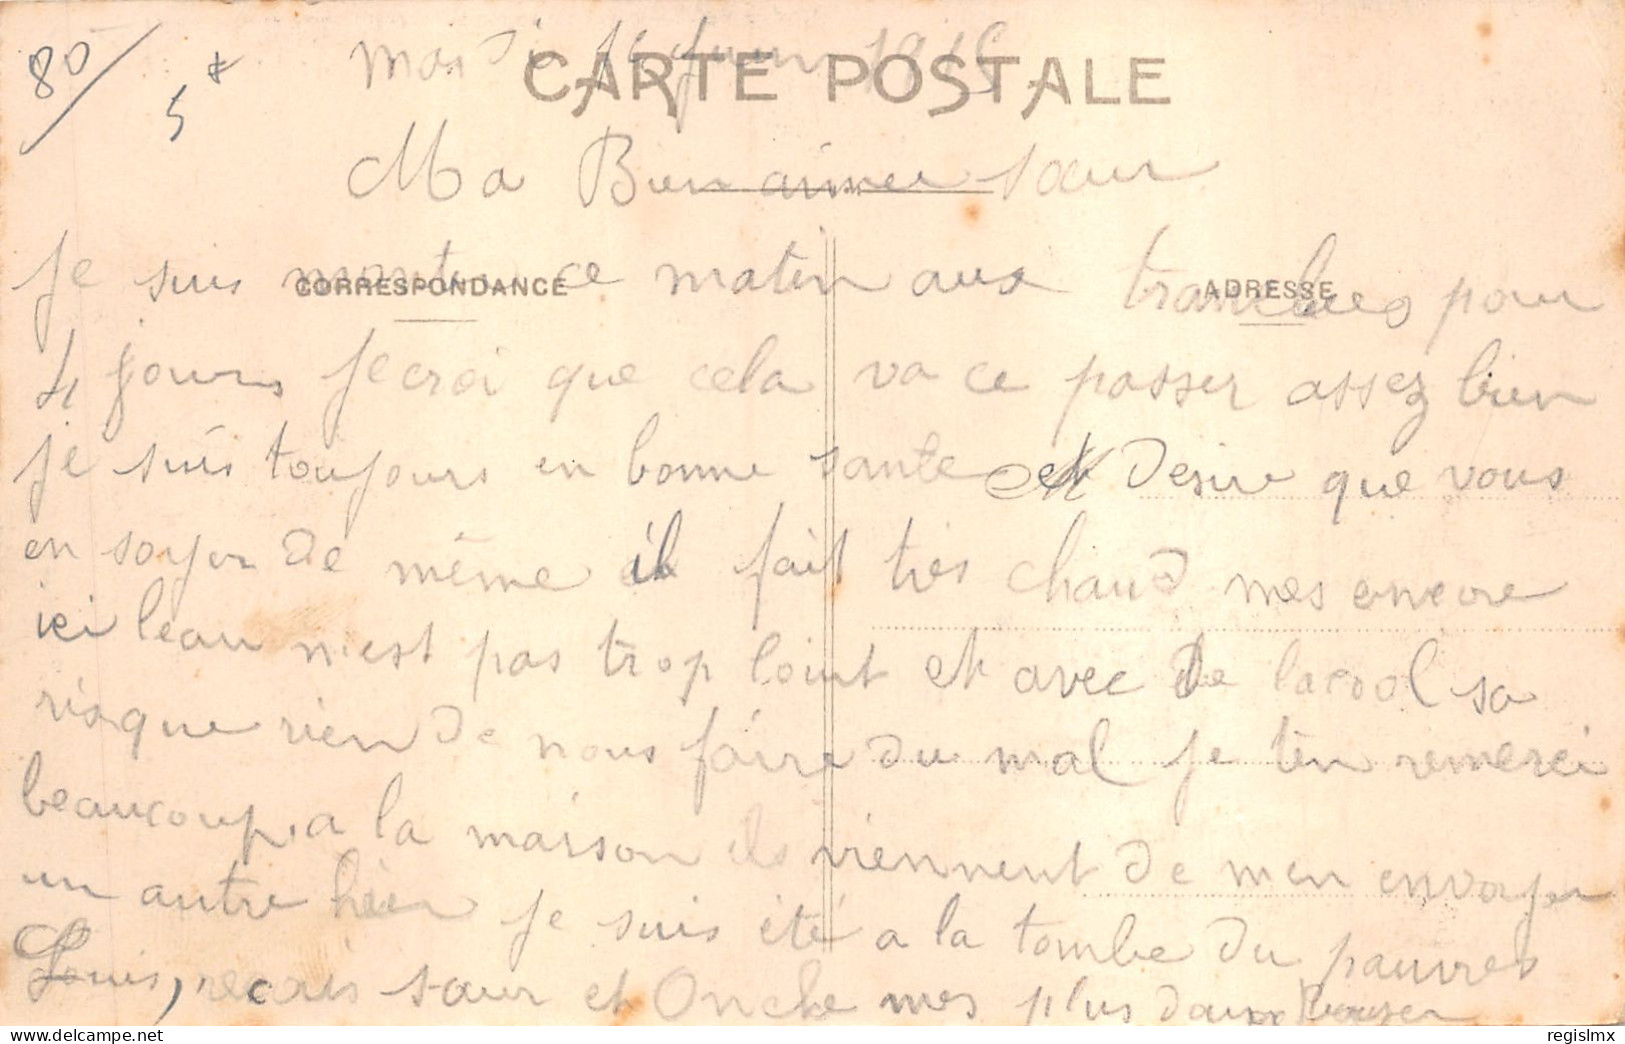 80/
5 *
mardi 15 juin 1915
CARTE POSTALE
Ma Bien aimee sœur
je suis monter ce matin aux tranchees pour
CORRESPONDANCE
ADRESSE
4 jours Je croi que cela va ce passer assez bien
je suis toujours en bonne sante et desire que vous
en soyer de même il fait très chaud mes encore
ici leau n'est pas trop loint et avec de lacool sa
risque rien de nous faire du mal je ten remerci
beaucoup, a la maison ils viennent de men envoyer
un autre hier je suis été a la tombe du pauvres
Louis, recois sœur et Oncle mes plus doux baiser
regislmx